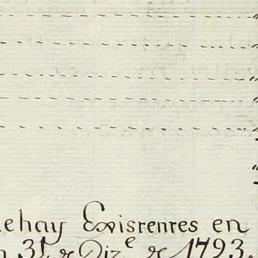 ehay Existentes en
31 de Diz.e de 1793.